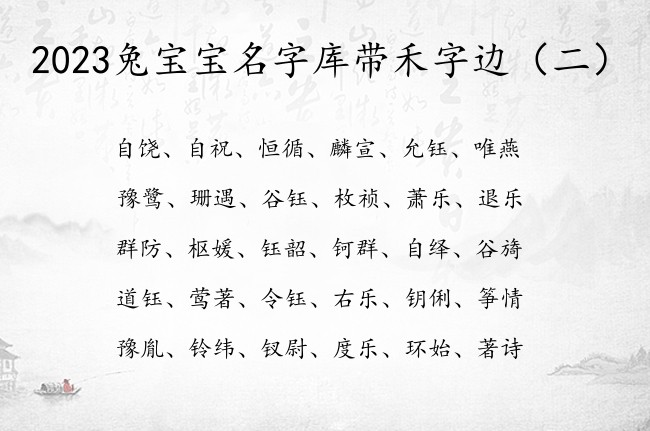 2023兔宝宝名字库带禾字边（二）
自饶、自祝、恒循、麟宣、允钰、唯燕
豫鹭、珊遇、谷钰、枚祯、萧乐、退乐
群防、枢媛、钰韶、钶群、自绎、谷旖
道钰、莺著、令钰、右乐、钥俐、筝情
豫胤、铃纬、钗尉、度乐、环始、著诗